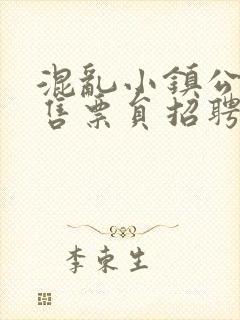 混乱小鎮公
售票員招聘
李東生